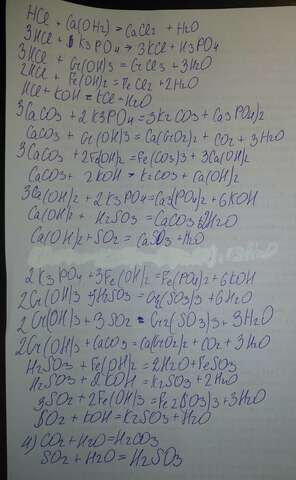 HCl + Ca(OH2) = CaCl2 + H2O
3HCl + K3PO4 = 3KCl + H3PO4
3HCl + Cr(OH)3 = CrCl3 + 3H2O
2HCl + Fe(OH)2 = FeCl2 + 2H2O
HCl + KOH = KCl + H2O
3CaCO3 + 2K3PO4 = 3K2CO3 + Ca3PO4)2
CaCO3 + Cr(OH)3 = Ca(CrO2)2 + CO2 + 3H2O
3CaCO3 + 2Fe(OH)2 = Fe(CO3)3 + 3Ca(OH)2
CaCO3 + 2KOH = K2CO3 + Ca(OH)2
3Ca(OH)2 + 2K3PO4 = Ca3(PO4)2 + 6KOH
Ca(OH)2 + H2SO3 = CaCO3 + 2H2O
Ca(OH)2 + SO2 = CaSO3 + H2O
2K3PO4 + 3Fe(OH)2 = Fe(PO4)2 + 6KOH
2Cr(OH)3 + 3H2SO3 = Cr2(SO3)3 + 6H2O
2Cr(OH)3 + 3SO2 = Cr2(SO3)3 + 3H2O
2Cr(OH)3 + CaCO3 = Ca(CrO2)2 + CO2 + 3H2O
H2SO3 + Fe(OH)2 = 2H2O + FeSO3
H2SO3 + 2KOH = K2SO3 + 2H2O
3SO2 + 2Fe(OH)3 = Fe2(SO3)3 + 3H2O
SO2 + KOH = K2SO3 + H2O
4) CO2 + H2O = H2CO3
SO2 + H2O = H2SO3